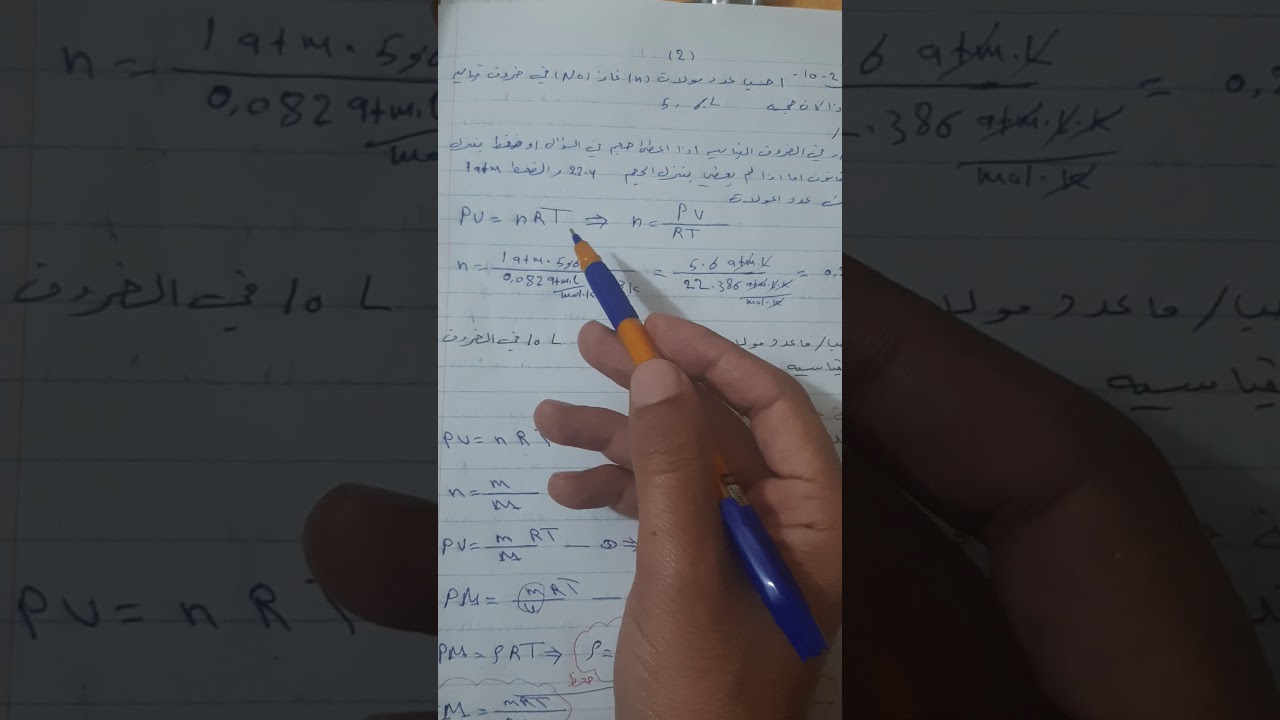 (2)
2-10- احسب عدد مولات (n) غاز (NO) في ضروف قياسيه
اذا كان حجمه 5.6L
في الضروف القياسيه اذا اعطا حجم في السؤال او ضغط ينزل
قانون اما اذا لم يعطي ينزل الحجم 22.4 والضغط 1atm
عدد المولات
PV = nRT ⇒ n = PV / RT
n = 1 atm . 5,6 / 0,082 atm.L / mol.k = 5.6 atm.L / 22.386 atm.L.K / mol.K = 0,
ما عدد مولا 10 L في الضروف
قياسيه
PV = n R T
n = m / M
PV = m / M RT
PM = m / V RT
PM = ρRT ⇒ ρ =
حفظ
M = mRT